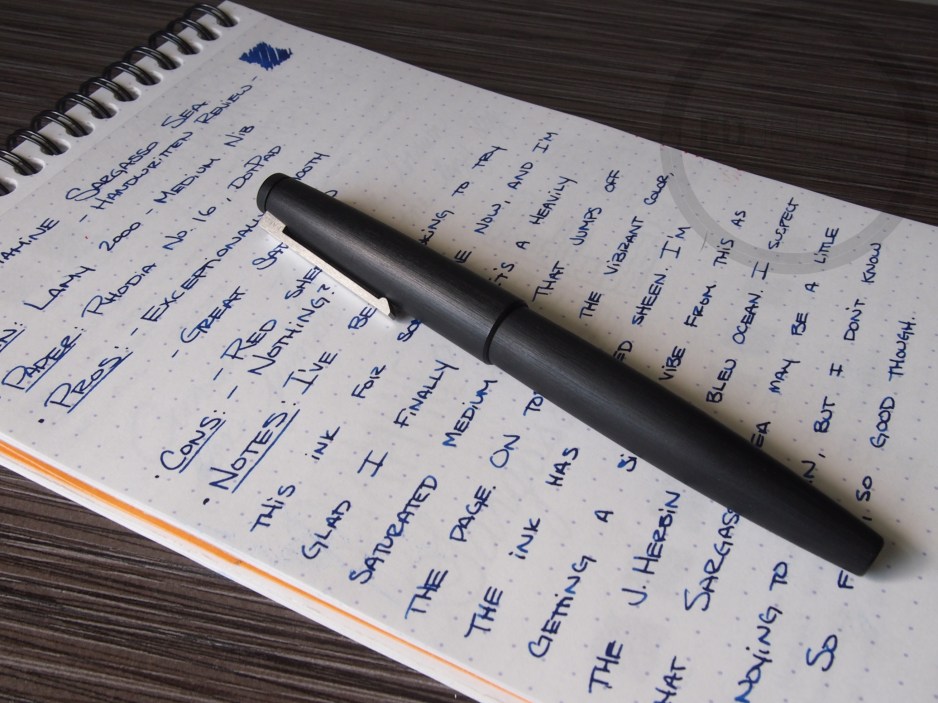 AMINE SARGASSO SEA
- HANDWRITTEN REVIEW -
N: LAMY 2000 - MEDIUM NIB
PAPER: RHODIA No 16, DOTPAD
PROS: - EXCEPTIONAL OOTH
- GREAT SAT
- RED SHE
CONS: - NOTHING?
NOTES: I'VE BE KING TO TRY
THIS INK FOR SO E NOW, AND I'M
GLAD I FINALLY IT'S A HEAVILY
SATURATED MEDIUM THAT JUMPS OFF
THE PAGE. ON TO THE VIBRANT COLOR,
THE INK HAS ED SHEEN. I'M
GETTING A SI VIBE FROM THIS AS
THE J. HERBIN BLEU OCEAN. I SUSPECT
HAT SARGASS EA MAY BE A LITTLE
NOYING TO N, BUT I DON'T KNOW
SO F , SO GOOD THOUGH.